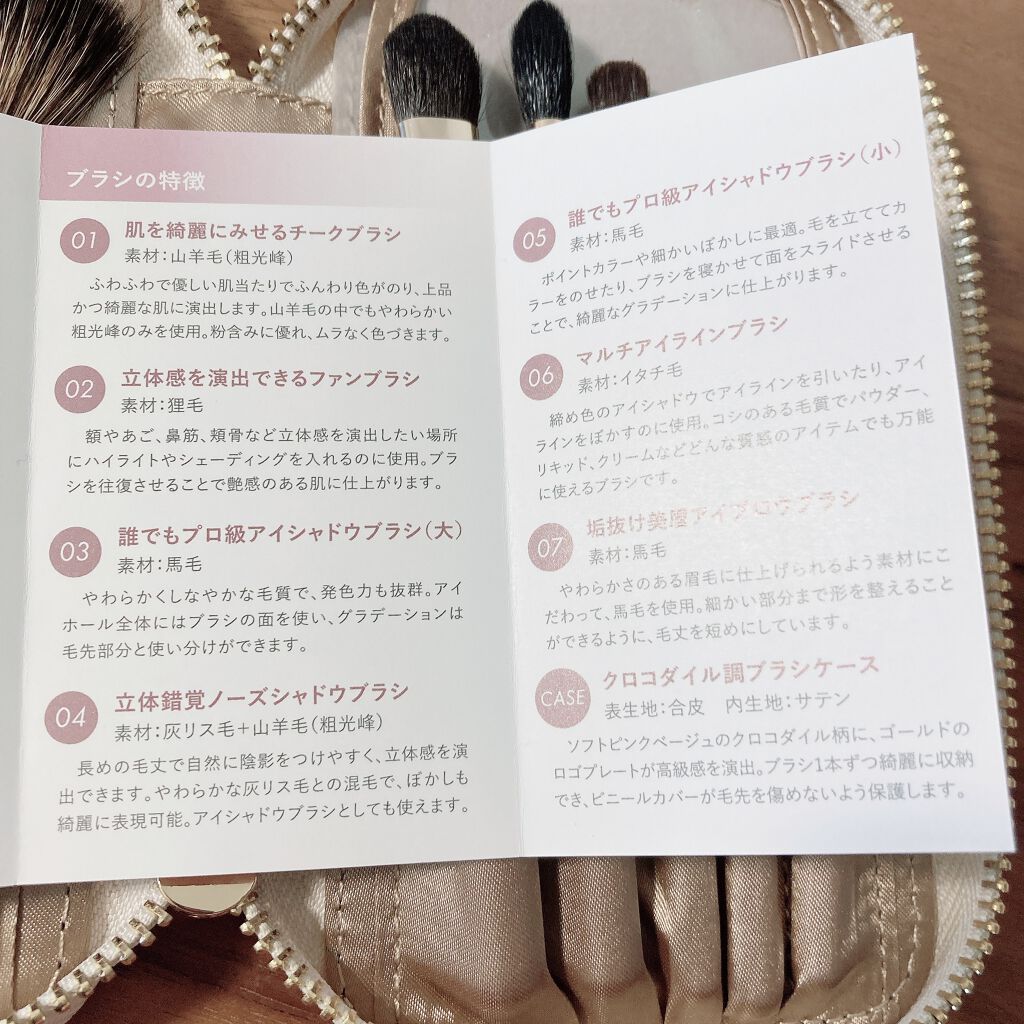 ブラシの特徴
01 肌を綺麗にみせるチークブラシ
素材:山羊毛(粗光峰)
ふわふわで優しい肌当たりでふんわり色がのり、上品
かつ綺麗な肌に演出します。山羊毛の中でもやわらかい
粗光峰のみを使用。粉含みに優れ、ムラなく色づきます。
02 立体感を演出できるファンブラシ
素材:狸毛
額やあご、鼻筋、頬骨など立体感を演出したい場所
にハイライトやシェーディングを入れるのに使用。ブラ
シを往復させることで艶感のある肌に仕上がります。
03 誰でもプロ級アイシャドウブラシ(大)
素材:馬毛
やわらかくしなやかな毛質で、発色力も抜群。アイ
ホール全体にはブラシの面を使い、グラデーションは
毛先部分と使い分けができます。
04 立体錯覚ノーズシャドウブラシ
素材:灰リス毛+山羊毛(粗光峰)
長めの毛丈で自然に陰影をつけやすく、立体感を演
出できます。やわらかな灰リス毛との混毛で、ぼかしも
綺麗に表現可能。アイシャドウブラシとしても使えます。
05 誰でもプロ級アイシャドウブラシ(小)
素材:馬毛
ポイントカラーや細かいぼかしに最適。毛を立ててカ
ラーをのせたり、ブラシを寝かせて面をスライドさせる
ことで、綺麗なグラデーションに仕上がります。
06 マルチアイラインブラシ
素材:イタチ毛
締め色のアイシャドウでアイラインを引いたり、アイ
ラインをぼかすのに使用。コシのある毛質でパウダー、
リキッド、クリームなどどんな質感のアイテムでも万能
に使えるブラシです。
07 垢抜け美眉アイブロウブラシ
素材:馬毛
やわらかさのある眉毛に仕上げられるよう素材にこ
だわって、馬毛を使用。細かい部分まで形を整えること
ができるように、毛丈を短めにしています。
CASE クロコダイル調ブラシケース
表生地:合皮 内生地:サテン
ソフトピンクベージュのクロコダイル柄に、ゴールドの
ロゴプレートが高級感を演出。ブラシ1本ずつ綺麗に収納
でき、ビニールカバーが毛先を傷めないよう保護します。